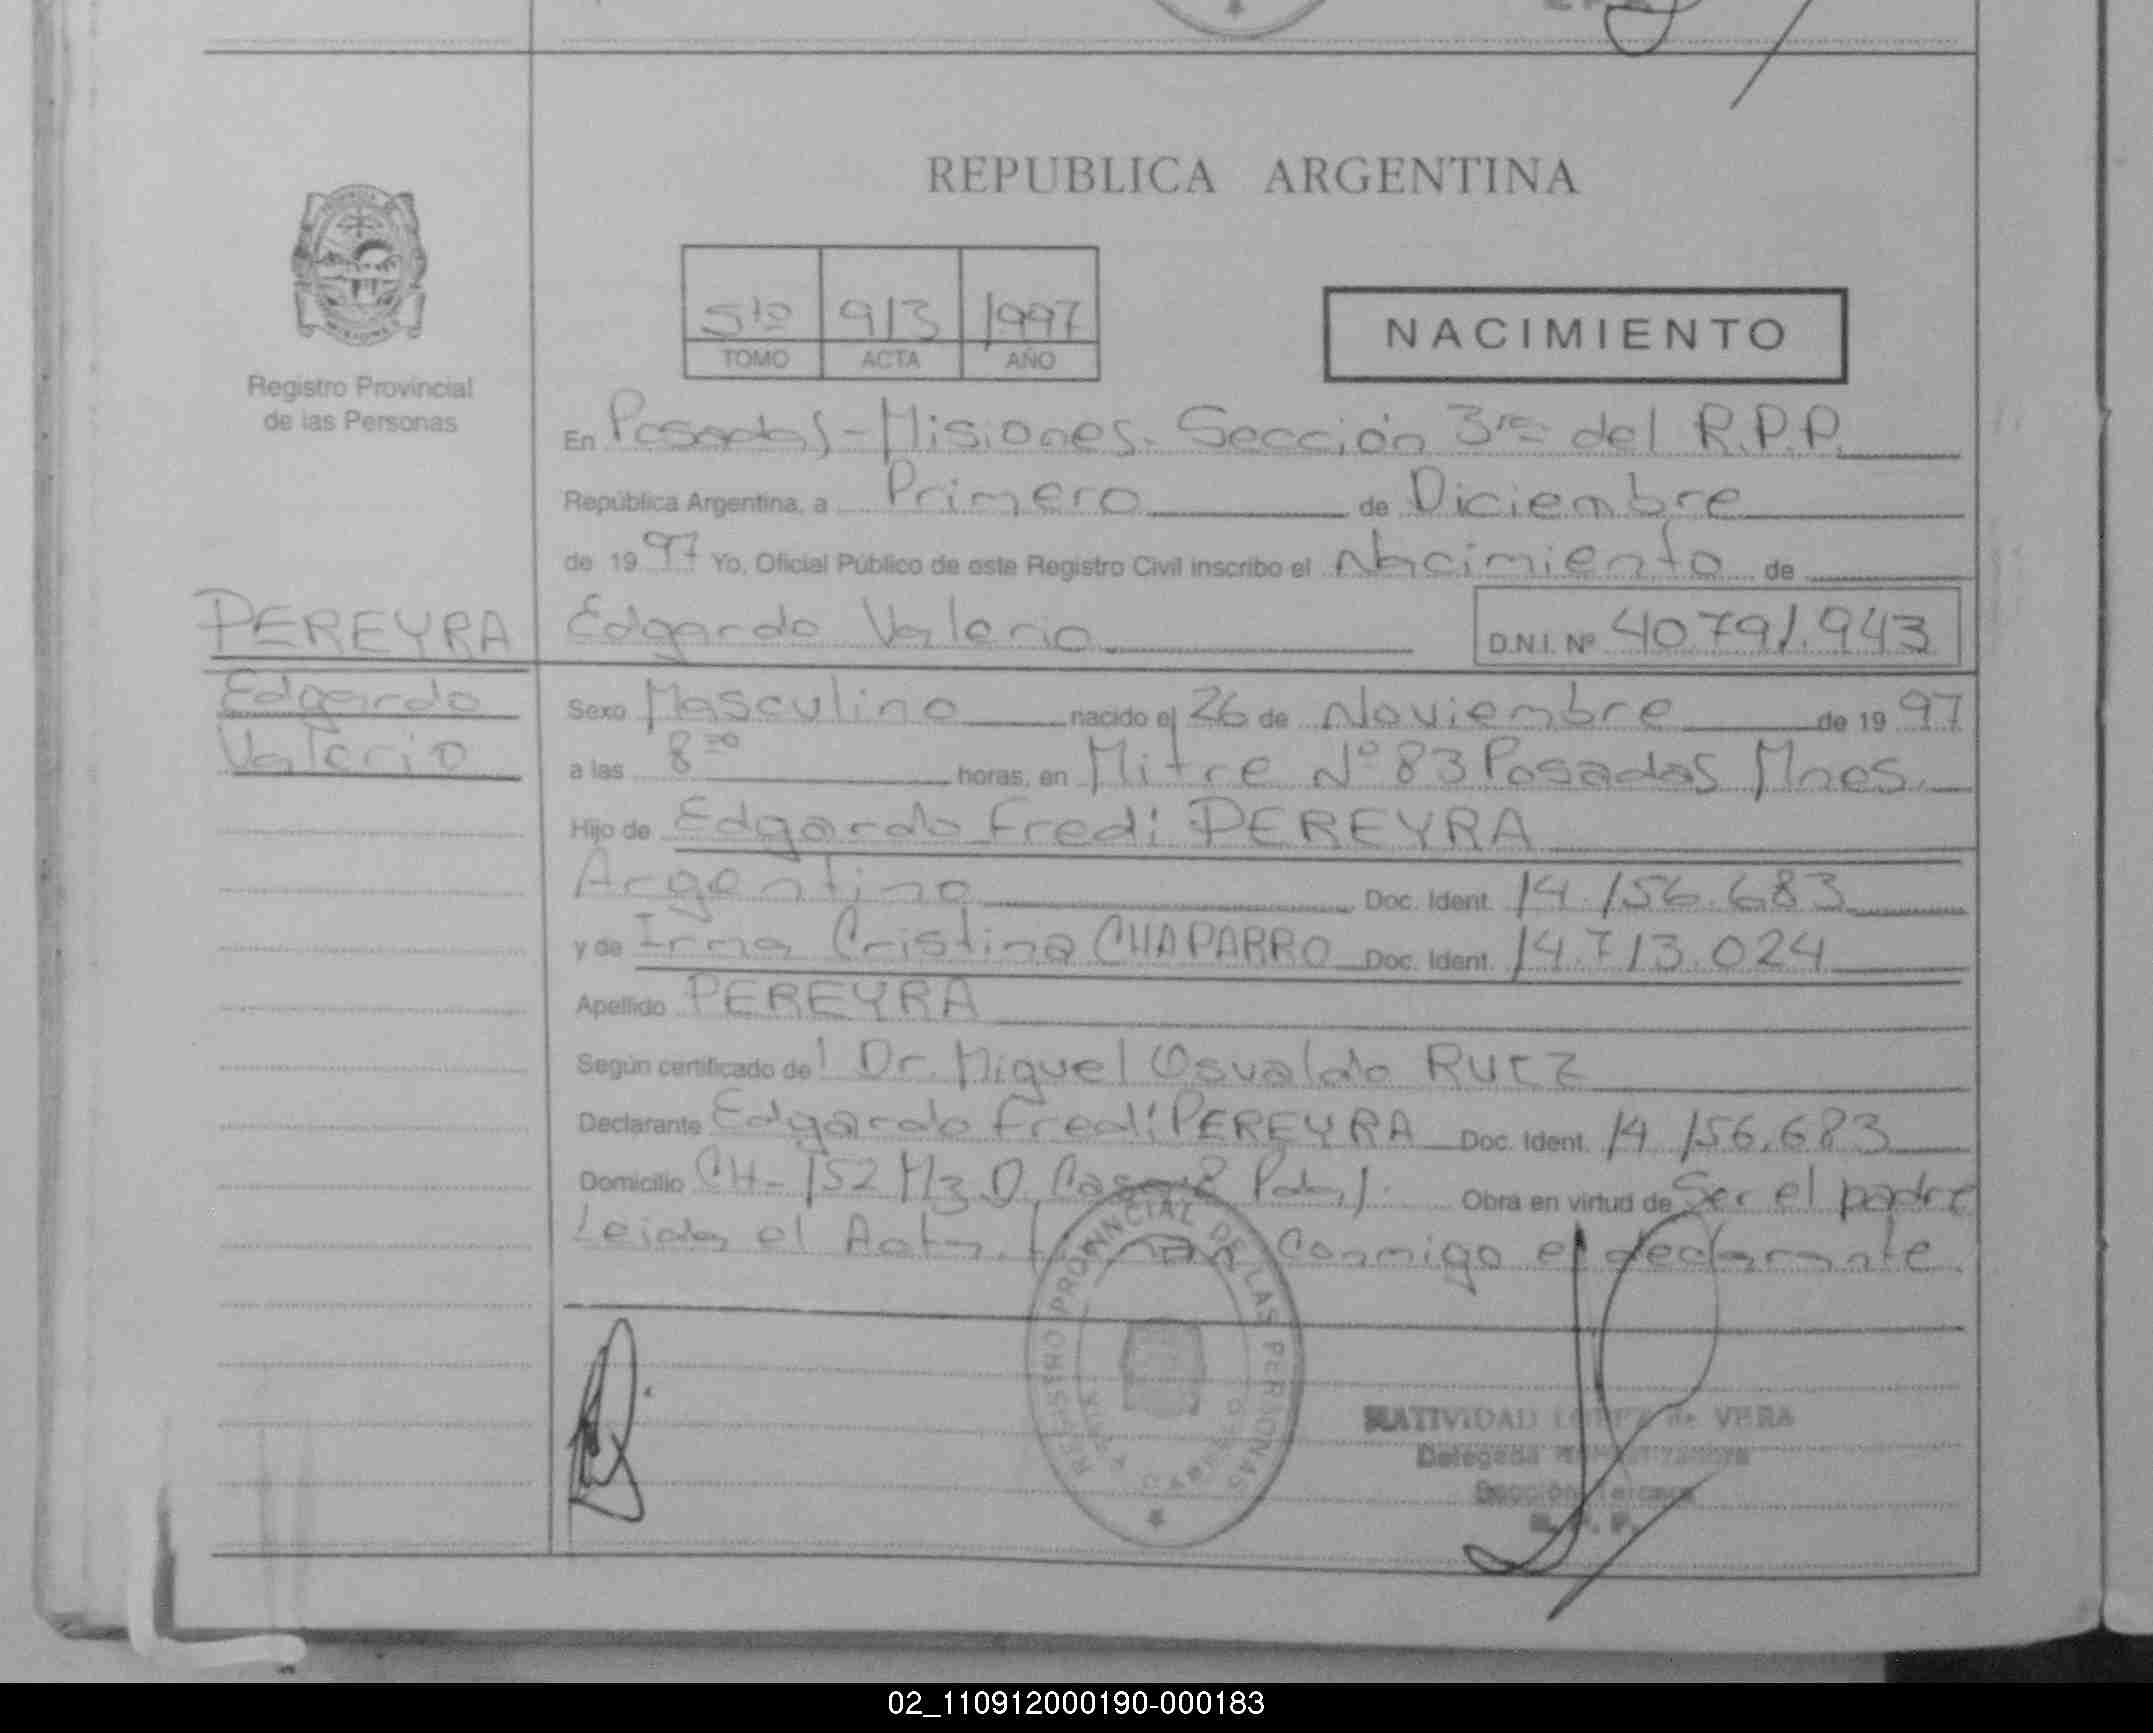 REPUBLICA ARGENTINA
5to 913 1997
TOMO ACTA AÑO
NACIMIENTO
Registro Provincial
de las Personas
En Posadas - Misiones. Sección 3ra del R.P.P.
República Argentina, a Primero de Diciembre
de 1997 Yo, Oficial Público de este Registro Civil inscribo el Nacimiento de
PEREYRA
Edgardo
Valerio
Edgardo Valerio D.N.I. Nº 40791.943
Sexo Masculino nacido el 26 de Noviembre de 1997
a las 8 horas, en Mitre Nº 83 Posadas Mnes.
Hijo de Edgardo Fredi PEREYRA
Argentino Doc. Ident. 14.156.683
y de Irma Cristina CHAPARRO Doc. Ident. 14.713.024
Apellido PEREYRA
Según certificado del Dr. Miguel Osvaldo RUIZ
Declarante Edgardo Fredi PEREYRA Doc. Ident. 14.156.683
Domicilio CH-152 Mz D Casa Pdas. Obra en virtud de Ser el padre
Leida el Acta, Conmigo el declarante
REGISTRO PROVINCIAL DE LAS PERSONAS
NATIVIDAD LOPEZ de VERA
Delegada
Sección Tercera
R. P. P.
02_110912000190-000183